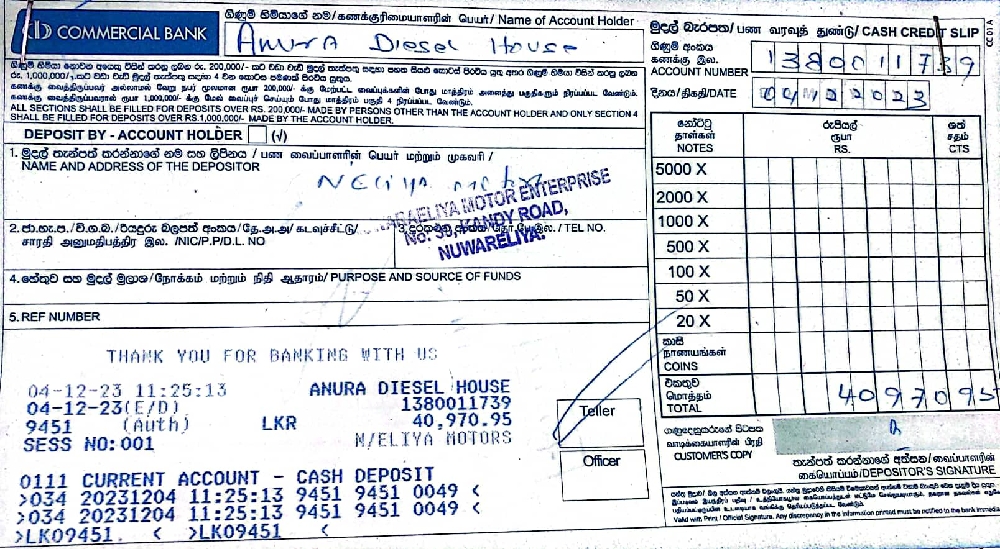 COMMERCIAL BANK
ගිණුම් හිමියාගේ නම/கணக்குரிமையாளரின் பெயர்/ Name of Account Holder
Anura Diesel House
මුදල් බැරපත/ பண வரவுத் துண்டு/ CASH CREDIT SLIP
ගිණුම් අංකය
கணக்கு இல.
ACCOUNT NUMBER
1380011739
දිනය/திகதி/DATE
04122023
ALL SECTIONS SHALL BE FILLED FOR DEPOSITS OVER RS. 200,000/- MADE BY PERSONS OTHER THAN THE ACCOUNT HOLDER AND ONLY SECTION 4
SHALL BE FILLED FOR DEPOSITS OVER RS.1,000,000/- MADE BY THE ACCOUNT HOLDER.
DEPOSIT BY - ACCOUNT HOLDER (√)
1. මුදල් තැන්පත් කරන්නාගේ නම සහ ලිපිනය / பண வைப்பாளரின் பெயர் மற்றும் முகவரி /
NAME AND ADDRESS OF THE DEPOSITOR
ELIYA MOTOR ENTERPRISE
No: 39, KANDY ROAD,
NUWARELIYA.
2. ජා.හැ.ප./වි.ග.බ./රියදුරු බලපත් අංකය/ தே.அ.அ/ கடவுச்சீட்டு/
சாரதி அனுமதிபத்திர இல. /NIC/P.P/D.L. NO
/ TEL NO.
4. හේතුව සහ මුදල් මූලාශ්‍ර/நோக்கம் மற்றும் நிதி ஆதாரம்/ PURPOSE AND SOURCE OF FUNDS
5. REF NUMBER
නෝට්ටු
தாள்கள்
NOTES
රුපියල්
ரூபா
RS.
ශත
சதம்
CTS
5000 X
2000 X
1000 X
500 X
100 X
50 X
20 X
කාසි
நாணயங்கள்
COINS
එකතුව
மொத்தம்
TOTAL
4097095
THANK YOU FOR BANKING WITH US
04-12-23 11:25:13 ANURA DIESEL HOUSE
04-12-23(E/D) 1380011739
9451 (Auth) LKR 40,970.95
SESS NO:001 N/ELIYA MOTORS
0111 CURRENT ACCOUNT - CASH DEPOSIT
>034 20231204 11:25:13 9451 9451 0049 <
>034 20231204 11:25:13 9451 9451 0049 <
>LK09451. < >LK09451 <
Teller
Officer
ගනුදෙනුකරුගේ පිටපත
வாடிக்கையாளரின் பிரதி
CUSTOMER'S COPY
තැන්පත් කරන්නාගේ අත්සන/வைப்பாளரின்
கையொப்பம்/DEPOSITOR'S SIGNATURE
Valid with Print / Official Signature. Any discrepancy in the information printed must be notified to the bank immedia